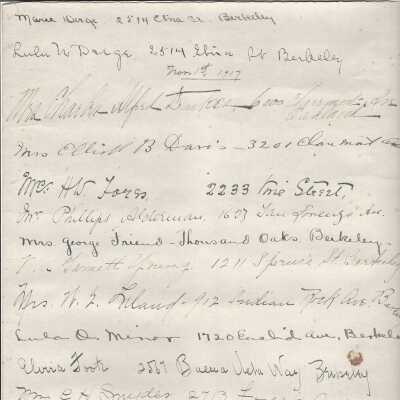 Marie Derge 2514 Etna St. Berkeley
Lulu W Derge, 2514 Etna St Berkeley
Nov 1st 1917
Mrs Charles Alfred 6
Oakland
Mrs Elliott B Davis - 3201 Claremont Ave
Mrs. H W Forbs 2233 Street,
Mr Phillips Alderman, 1607 Ave.
Mrs George Friend - Thousand Oaks, Berkeley.
Young 1211 Spruce St Berkeley
Mrs. W. F. 912 Indian Rock Ave, Ber
Lulu D. Minor 1720 Euclid Ave, Berkele
Elvira Cook 2567 Buena Vista Way Berkeley
Mrs E H Snyder 27